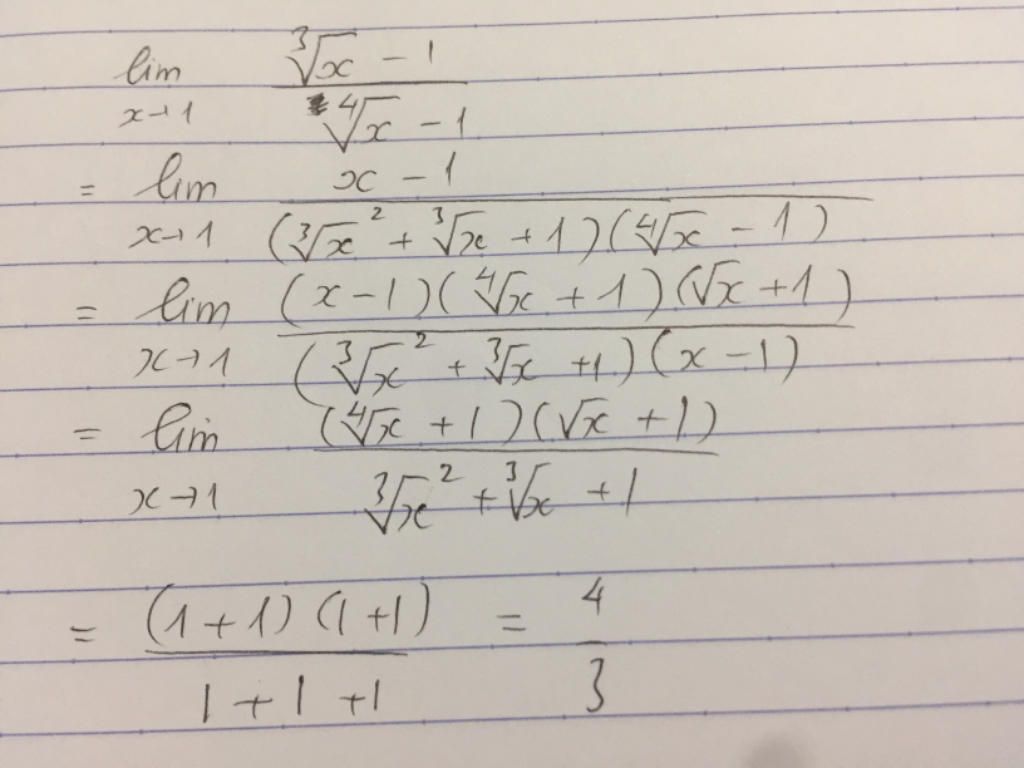 lim ∛x - 1
x→1 ∜x - 1
= lim x - 1
x→1 (∛x² + ∛x + 1)(∜x - 1)
= lim (x - 1)(∜x + 1)(√x + 1)
x→1 (∛x² + ∛x + 1)(x - 1)
= lim (∜x + 1)(√x + 1)
x→1 ∛x² + ∛x + 1
= (1 + 1)(1 + 1) = 4
1 + 1 + 1 3